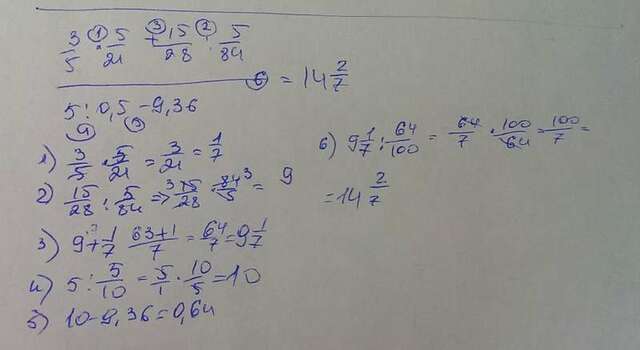 3/5 · 5/21 + 15/28 : 5/84
① ③ ②
⑥ = 14 2/7
5 : 0,5 - 9,36
④ ⑤
1) 3/5 · 5/21 = 3/21 = 1/7
2) 15/28 : 5/84 => 15/28 · 84/5 = 9
3 3
3) 9 + 1/7 63+1/7 = 64/7 = 9 1/7
4) 5 : 5/10 = 5/1 · 10/5 = 10
5) 10 - 9,36 = 0,64
6) 9 1/7 : 64/100 = 64/7 · 100/64 = 100/7 =
= 14 2/7